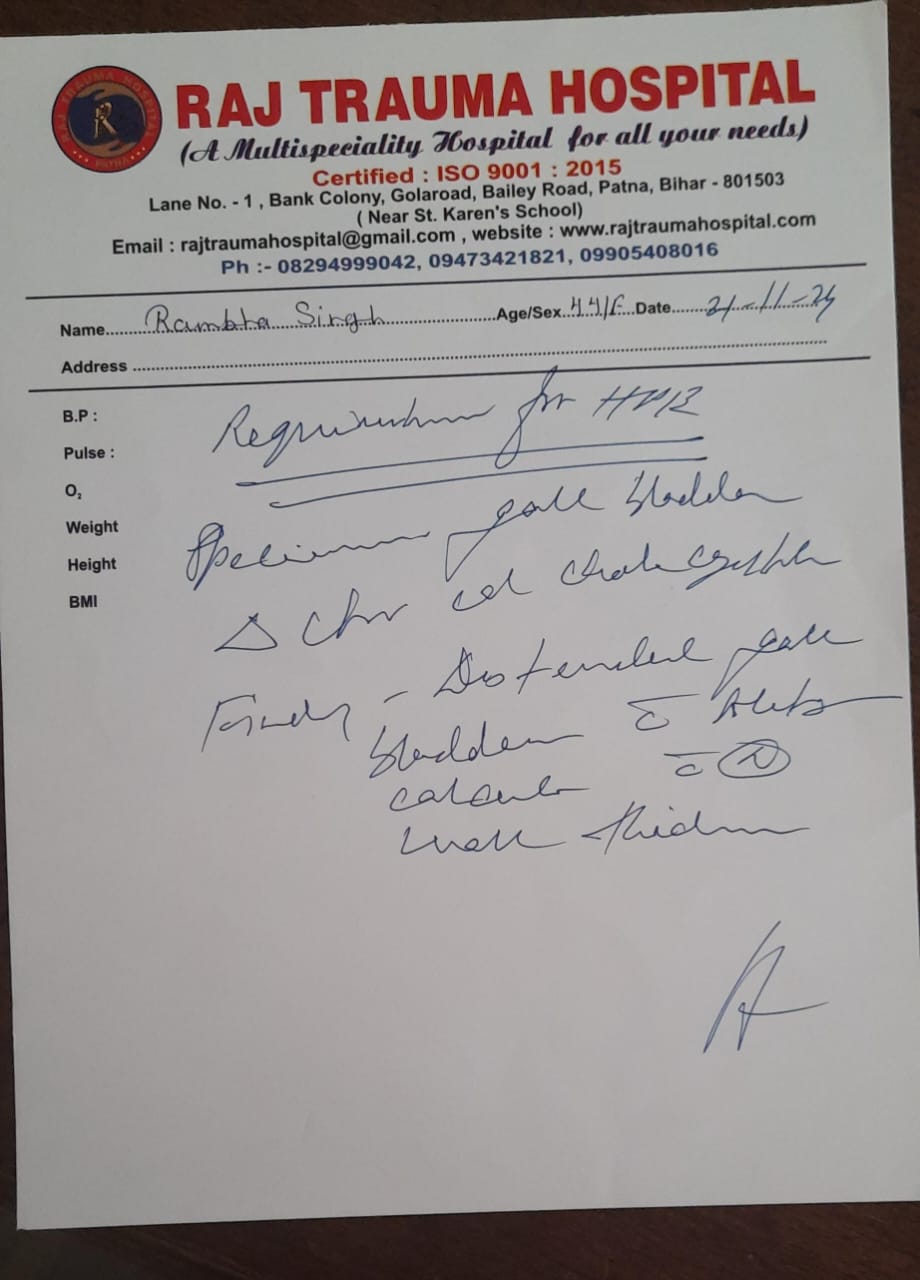 RAJ TRAUMA HOSPITAL
(A Multispeciality Hospital for all your needs)
Certified : ISO 9001 : 2015
Lane No. - 1 , Bank Colony, Golaroad, Bailey Road, Patna, Bihar - 801503
( Near St. Karen's School)
Email : rajtraumahospital@gmail.com , website : www.rajtraumahospital.com
Ph :- 08294999042, 09473421821, 09905408016
RAJ TRAUMA HOSPITAL
R
PATNA
Name Rambha Singh Age/Sex 44/F Date 21-11-24
Address
B.P :
Pulse :
O₂
Weight
Height
BMI
Requisition for HPR
Specimen gall bladder
Δ Chr cal
- Distended gall
bladder c̄
calculi c̄ (N)
wall thickn